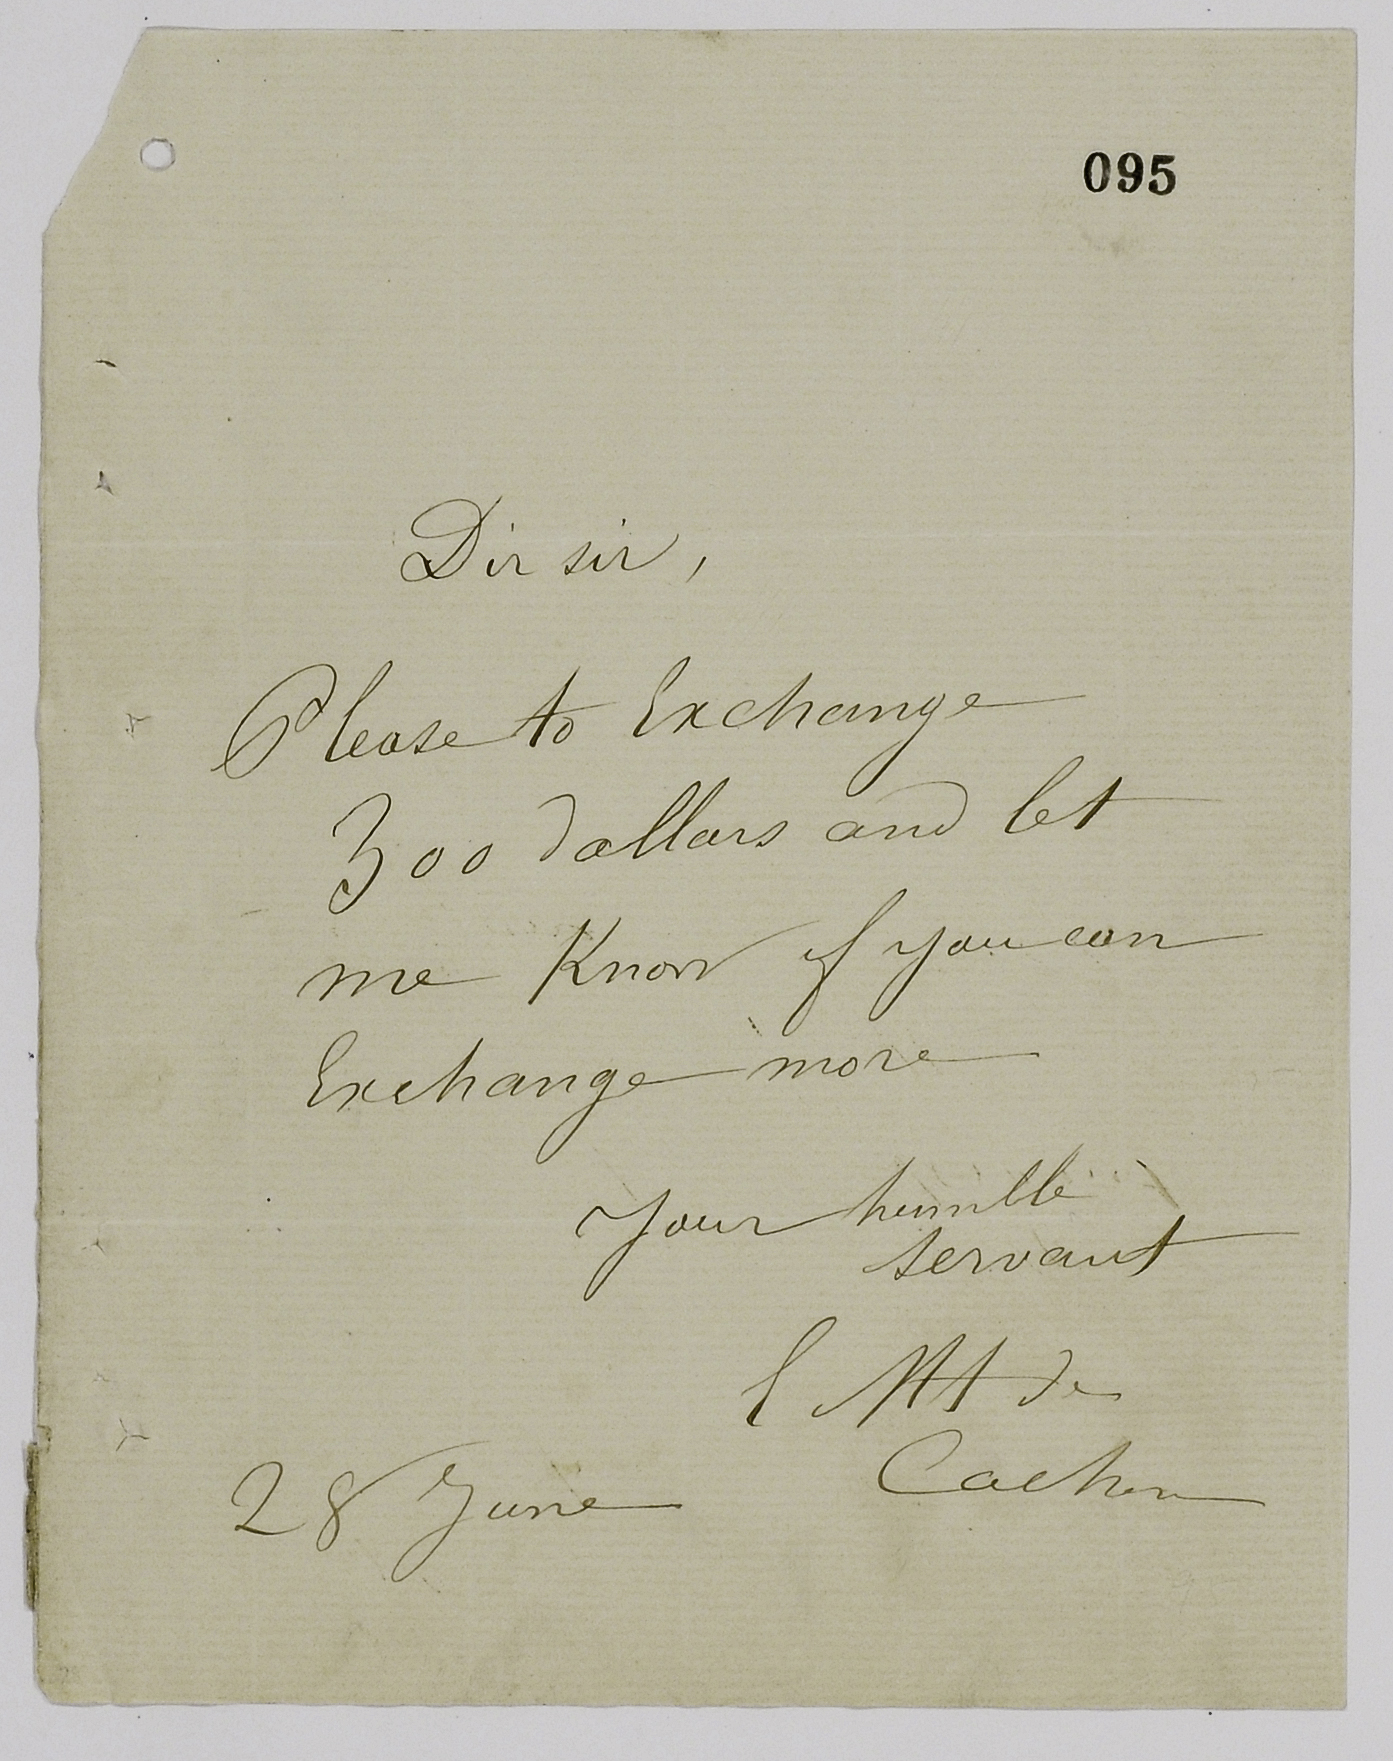 095
Dir sir,
Please to Exchange
300 dollars and let
me Know if you can
Exchange more
Your humble
servant
de
28 June